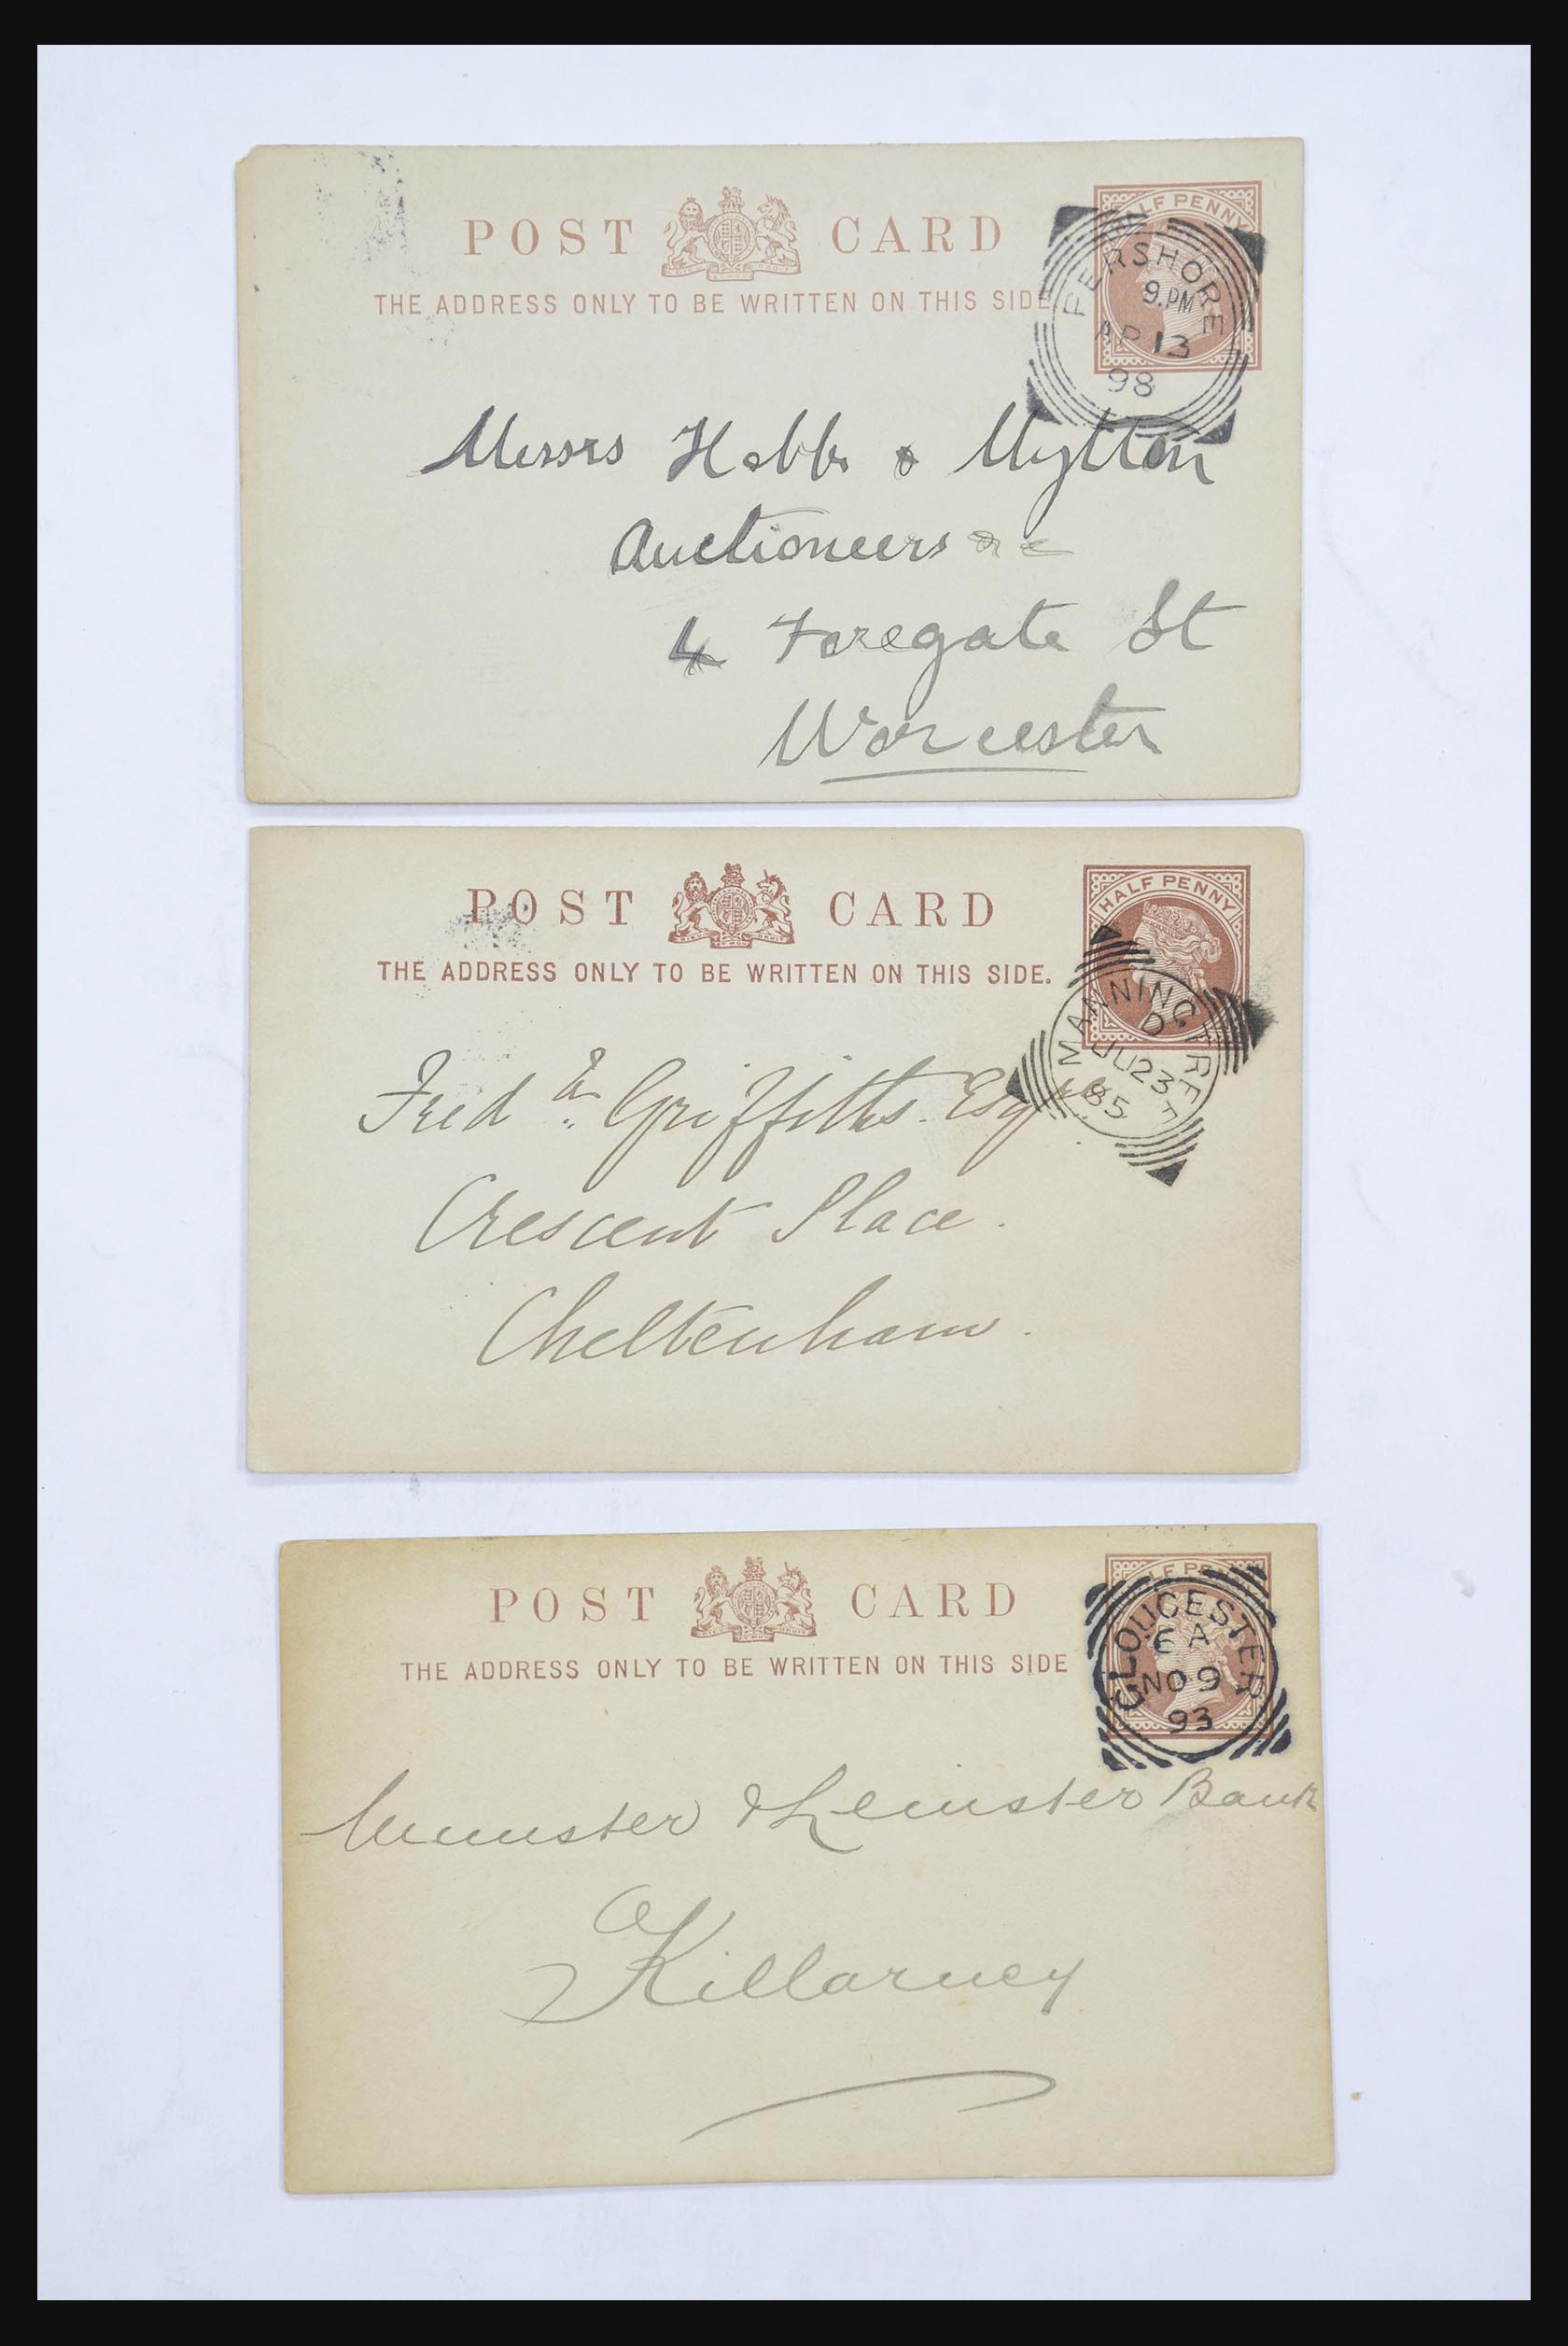 POST CARD
THE ADDRESS ONLY TO BE WRITTEN ON THIS SIDE
HALF PENNY
PERSHORE
9.PM
AP 13
98
Messrs Hobbs & Mytton
Auctioneers &c
4 Foregate St
Worcester
POST CARD
THE ADDRESS ONLY TO BE WRITTEN ON THIS SIDE.
HALF PENNY
MANNINGTREE
D
JU 23
85
Fred Griffiths. Esqre
Crescent Place.
Cheltenham.
POST CARD
THE ADDRESS ONLY TO BE WRITTEN ON THIS SIDE
HALF PENNY
GLOUCESTER
6 A
NO 9
93
Munster & Leinster Bank
Killarney